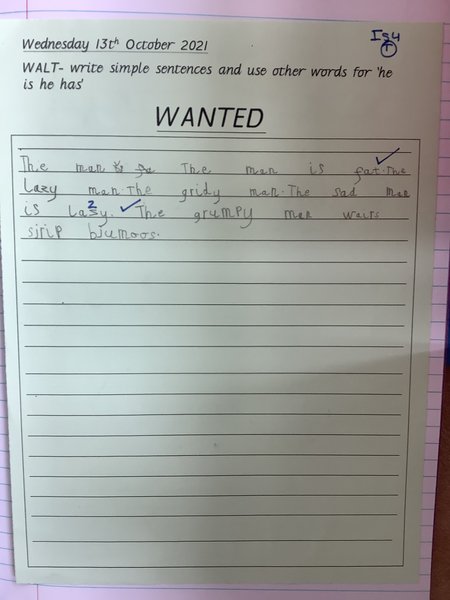 Wednesday 13th October 2021
WALT- write simple sentences and use other words for 'he
is he has'
WANTED
The man The man is fat. The
lazy man. The gridy man. The sad man
is lazy. The grumpy man wairs
sirip bjumoos.